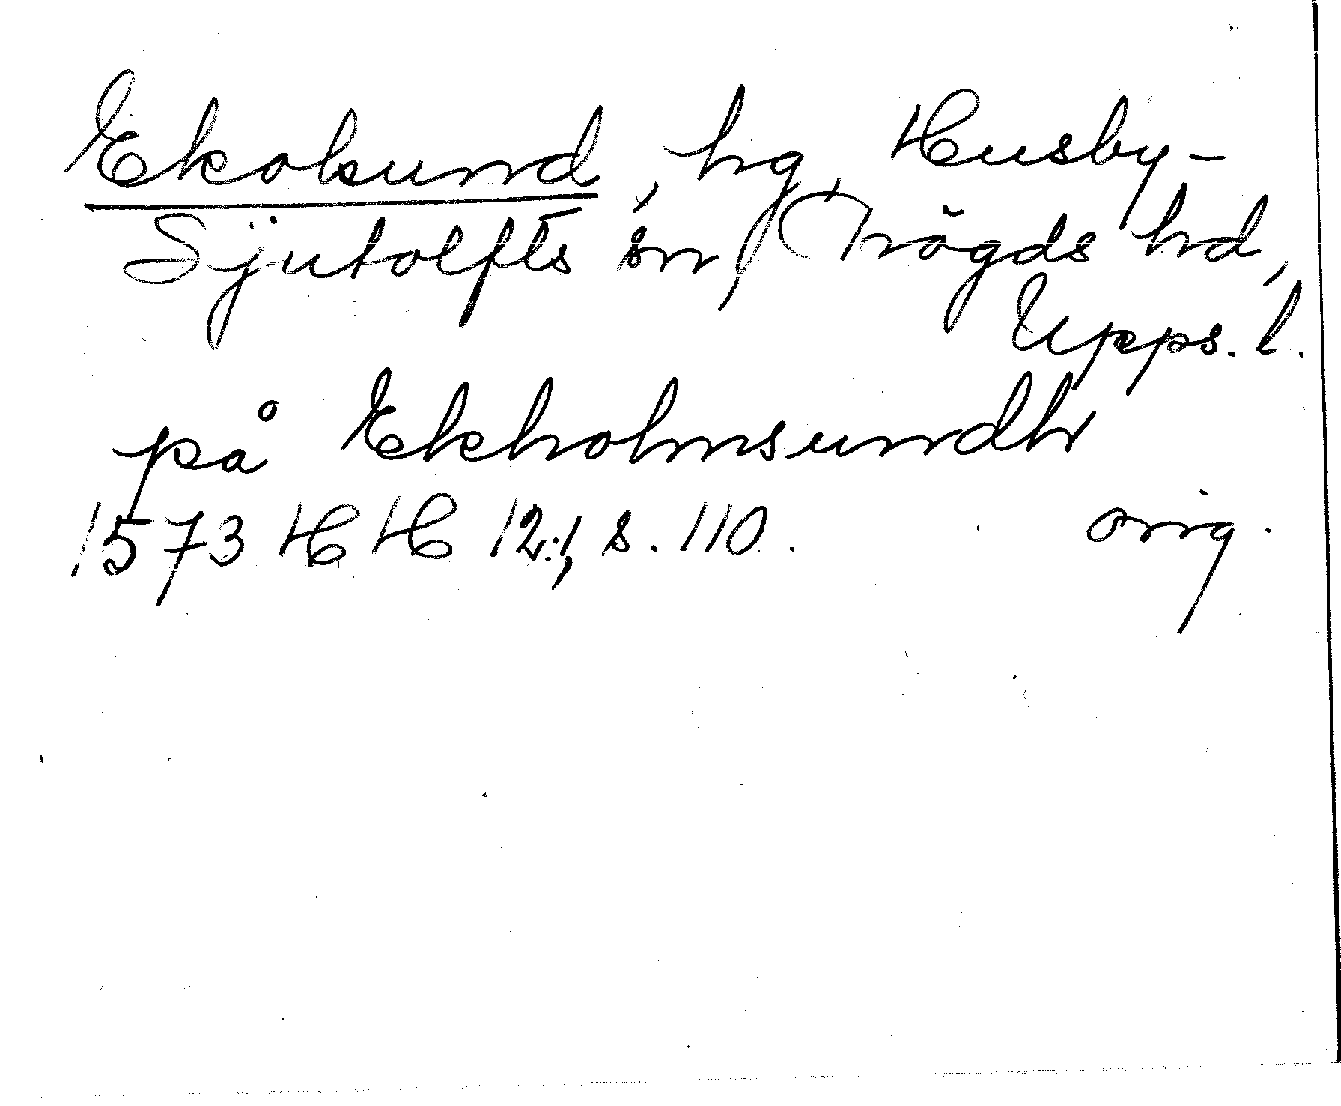 Ekolsund, hg, Husby-
Sjutolfts sn, Trögds hd,
Upps. l.
på Ekholmsundh
1573 HH 12:1, s. 110. orig.